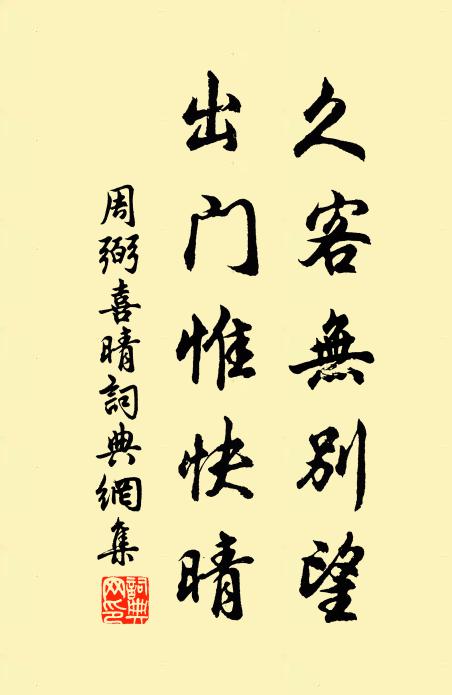 久客無別望
出门惟快晴
周弼喜晴詞典網集
詞典
网印